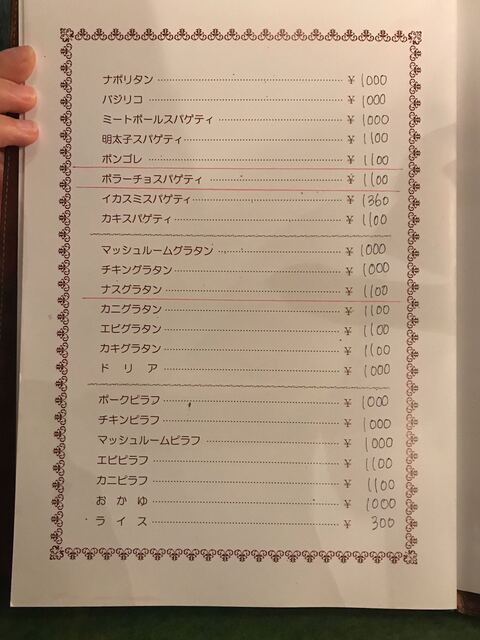 ナポリタン ¥ 1000
バジリコ ¥ 1000
ミートボールスパゲティ ¥ 1000
明太子スパゲティ ¥ 1100
ボンゴレ ¥ 1100
ボラーチョスパゲティ ¥ 1100
イカスミスパゲティ ¥ 1360
カキスパゲティ ¥ 1100
マッシュルームグラタン ¥ 1000
チキングラタン ¥ 1000
ナスグラタン ¥ 1100
カニグラタン ¥ 1100
エビグラタン ¥ 1100
カキグラタン ¥ 1100
ドリア ¥ 1000
ポークピラフ ¥ 1000
チキンピラフ ¥ 1000
マッシュルームピラフ ¥ 1000
エビピラフ ¥ 1100
カニピラフ ¥ 1100
おかゆ ¥ 1000
ライス ¥ 300